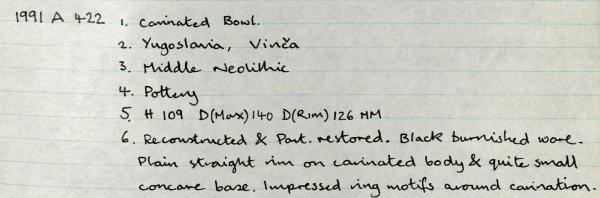 1991 A 422 1. Carinated Bowl.
2. Yugoslavia, Vinča
3. Middle Neolithic
4. Pottery
5. H 109 D(Max) 140 D(Rim) 126 MM
6. Reconstructed & Part. restored. Black burnished ware.
Plain straight rim on carinated body & quite small
concave base. Impressed ring motifs around carination.